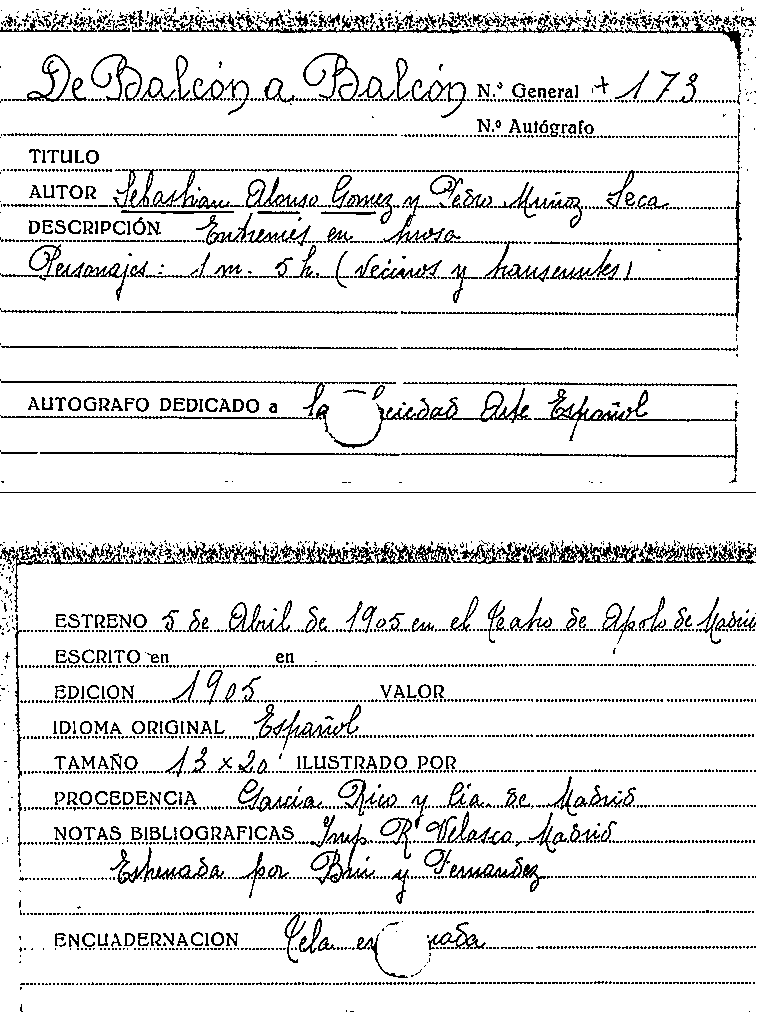 De Balcón a Balcón N.º General + 173
N.º Autógrafo
TITULO
AUTOR Sebastian Alonso Gomez y Pedro Muñoz Seca
DESCRIPCIÓN Entremés en prosa
Personajes: 1 m. 5 h. (vecinos y transeuntes)
AUTOGRAFO DEDICADO a la ciedad Arte Español
ESTRENO 5 de Abril de 1905 en el Teatro de Apolo de Madrid
ESCRITO en en
EDICION 1905 VALOR
IDIOMA ORIGINAL Español
TAMAÑO 13 x 20 ILUSTRADO POR
PROCEDENCIA García Rico y Cia. de Madrid
NOTAS BIBLIOGRAFICAS Imp R. Velasco, Madrid
Estrenada por y Fernandez
ENCUADERNACION Tela en